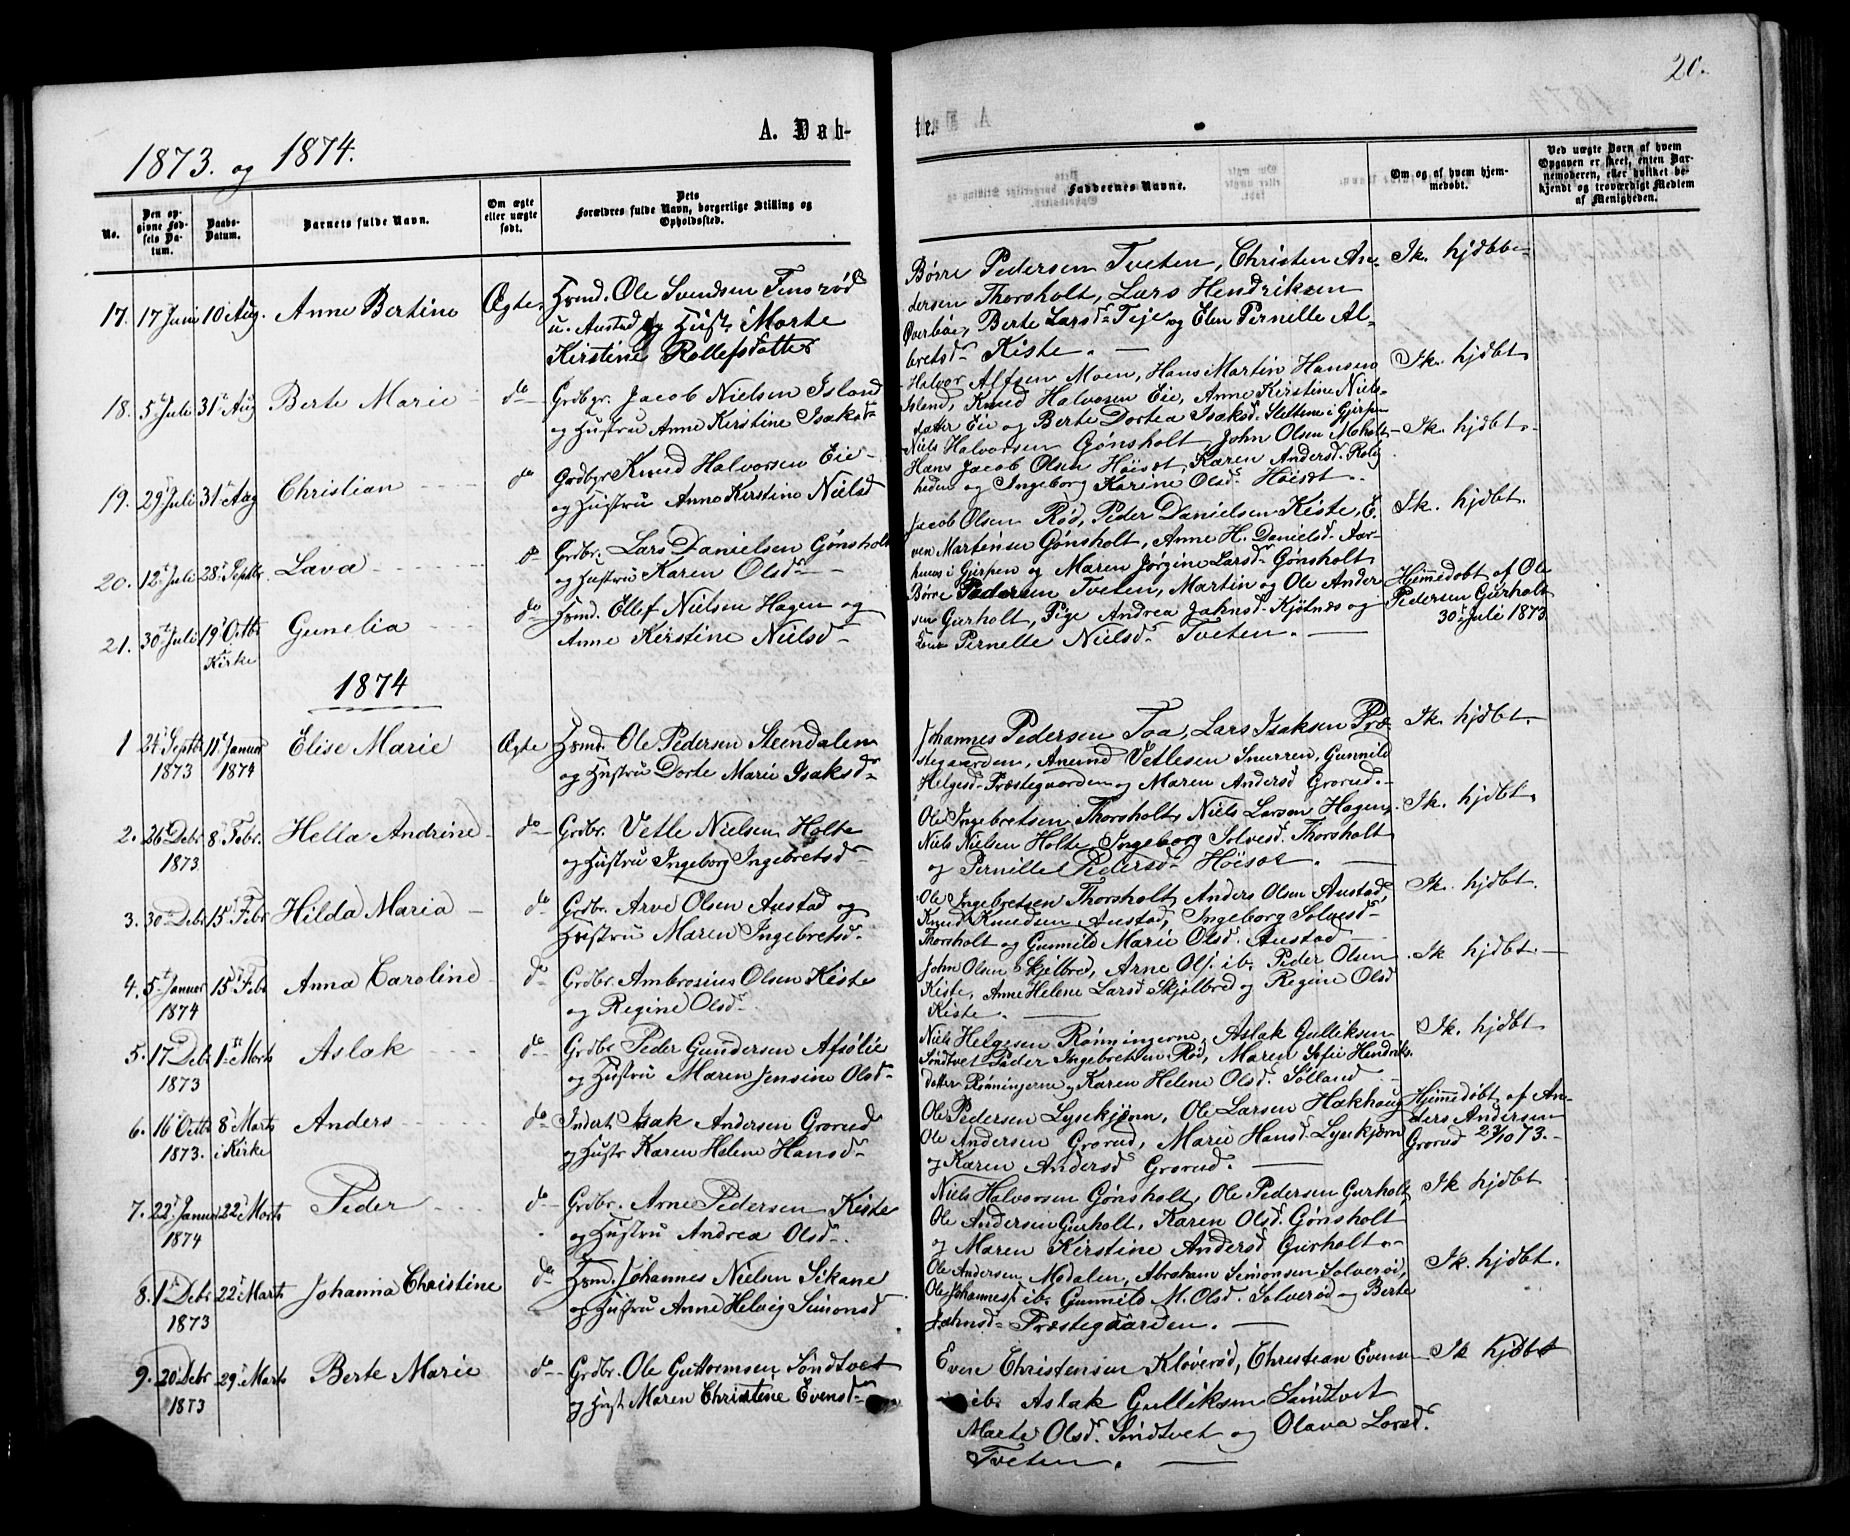 20.
1873. og 1874.
A. Døb-
te.
No.
Den op-
givne Fød-
sels Da-
tum.
Daabs-
Datum.
Barnets fulde Navn.
Om ægte
eller uægte
født.
Dets
Forældres fulde Navn, borgerlige Stilling og
Opholdssted.
Faddernes Navne.
Om og af hvem hjem-
medøbt.
Ved uægte Børn af hvem
Opgaven er skeet, enten Bar-
nemoderen, eller hvilket be-
kjendt og troværdigt Medlem
af Menigheden.
17. 17 Juni 10 Aug. Anne Bertine Ægte.
Hsmd. Ole Svendsen Finsrød
u. Austad og Hust. Marte
Kirstine Rollefsdatter
Børre Pedersen Tveten, Christen An-
dersen Thorsholt, Lars Hendriksen
Øverbøe, Berte Larsd. Teje og Elen Pernille Al-
bretsd. Kiste.
Ik. hjdbt
18. 5t Juli 31t Aug Berte Marie do
Grdbgr. Jacob Nielsen Island
og Hustru Anne Kirstine Isaksd.
Halvor Alfsen Moen, Hans Martin Hansen
Island, Knud Halvosen Eie, Anne Kirstine Niels-
datter Eie og Berte Dortea Isaksd. Slettene i Gjerpen
Ik. hjdbt
19. 29t Juli 31t Aug Christian do
Grdbgr Knud Halvorsen Eie
og Hustru Anne Kirstine Nielsd
Niels Halvorsen Gønsholt, John Olsen Moholt
Hans Jacob Olsen Høiset, Karen Andersd. Rolig
heden og Ingeborg Karine Olsd. Høiset.
Ik. hjdbt.
20. 12t Juli 28t Septbr. Lava do
Grdbr. Lars Danielsen Gønsholt
og Hustru Karen Olsd.
Jacob Olsen Rød, Peder Danielsen Kiste, E-
ven Martinsen Gønsholt, Anne H. Danielsd. Aar-
huus i Gjerpen og Maren Jørgine Larsd. Gønsholt
Ik. hjdbt.
21. 30t Juli 19t Octbr Kirke Gunelia do
Hsmd. Ellef Nielsen Hagen og
Anne Kirstine Nielsd.
Børre Pedersen Tveten, Martin og Ole Ander
sen Gurholt, Pige Andrea Jahnsd. Kjøtnæs og
Pernelle Nielsd. Tveten.
Hjemmedøbt af Ole
Pedersen Gurholt
30t Juli 1873.
1874
1 24t Septbr 1873 11t Januar 1874 Elise Marie Ægte
Hsmd. Ole Pedersen Steendalen
og Hustru Dorte Marie Isaksd.
Johannes Pedersen Foa, Lars Isaksen Præ-
stegaarden, Anund Vetlesen Snurren, Gunnild
Helgesd. Præstegaarden og Maren Andersd Grorud.
Ik. hjdbt.
2. 26t Debr 1873 8t Febr. Hella Andrine do
Grdbr. Vetle Nielsen Holte
og Hustru Ingeborg Ingebretsd.
Ole Ingebretsen Thorsholt, Niels Larsen Hagen,
Niels Nielsen Holte, Ingeborg Solvesd. Thorsholt
og Pernille Pedersd. Høiset.
Ik. hjdbt.
3. 30t Debr 15t Febr Hilda Maria do
Grdbr. Arve Olsen Austad og
Hustru Maren Ingebretsd.
Ole Ingebretsen Thorsholt, Anders Olsen Austad,
Knud Knudsen Austad, Ingeborg Solvesd.
Thorsholt og Gunnild Marie Olsd. Austad
Ik. hjdbt.
4. 5t Januar 1874 15t Febr Anna Caroline do
Grdbr. Ambrosius Olsen Kiste
og Regine Olsd.
John Olsen Skjelbred, Arne Ols. ib. Peder Olsen
Kiste, Anne Helene Larsd Skjelbred og Regine Olsd
Kiste.
Ik hjdbt.
5. 17t Debr 1873 1t Marts Aslak do
Grdbr Peder Gundersen Afsølie
og Hustru Maren Jensine Olsd.
Niels Helgesen Rønningerne, Aslak Gulliksen
Søndtvet Peder Ingebretsen Rød, Maren Sofie Hendriks.
datter Rønningerne og Karen Helene Olsd. Sølland
Ik. hjdbt
6. 16t Octbr 1873. 8t Marts i Kirke Anders do
Inderst Isak Andersen Grorud
og Hustr Karen Helene Hansd.
Ole Pedersen Lysekjønn, Ole Larsen Hækhaug
Ole Andersen Grorud, Marie Hansd. Lysekjørn
og Karen Andersd Grorud.
Hjemmedøbt af An-
ders Andersen
Grorud 23/10 73.
7. 22t Januar 1874 22t Marts Peder do
Grdbr. Arne Pedersen Kiste
og Hustru Andrea Olsd.
Niels Halvorsen Gønsholt, Ole Pedersen Gurholt,
Ole Andersen Gurholt, Karen Olsd. Gønsholt
og Maren Kirstine Andersd Gurholt.
Ik hjdbt
8. 1t Debr 1873 22t Marts Johanna Christine do
Hsmd. Johannes Nielsen Sikane
og Hustru Anne Helvig Simonsd
Ole Andersen Modalen, Abraham Simonsen Solverød,
Ole Johannes. ib. Gunnild M. Olsd. Solverød og Berte
Jahnsd. Præstegaarden.
Ik. hjdbt.
9. 20t Debr 1873 29t Marts Berte Marie do
Grdbr. Ole Guttormsen Søndtvet
og Hust Maren Christine Evensd.
Even Christensen Kløverød, Christian Evensen
ib. Aslak Gulliksen Søndtvet
Marte Olsd. Søndtvet og Olava Larsd.
Tveten.
Ik hjdbt